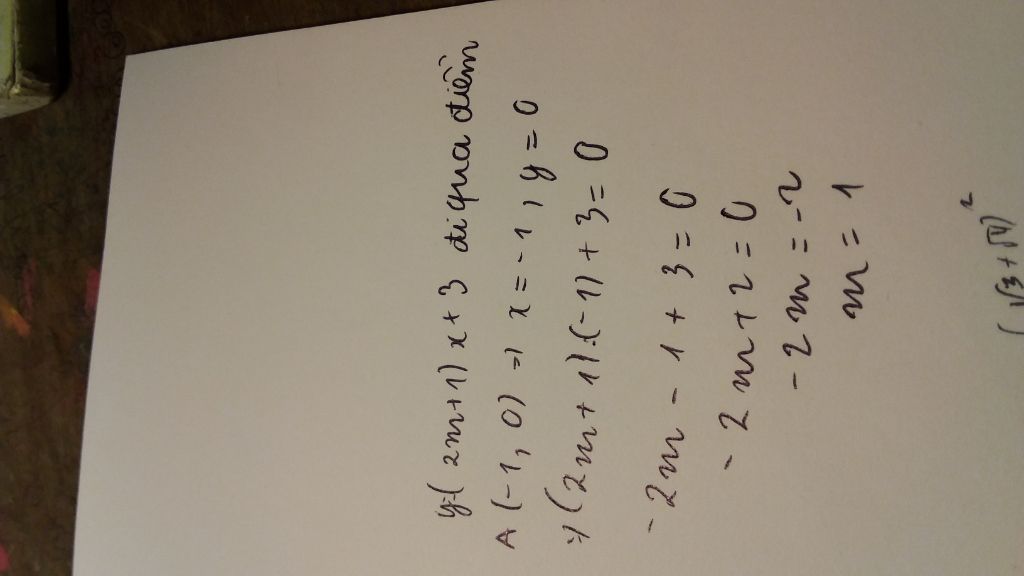 y=(2m+1)x+3 đi qua điểm
A(-1,0) => x=-1, y=0
=> (2m+1).(-1)+3=0
-2m-1+3=0
-2m+2=0
-2m=-2
m=1